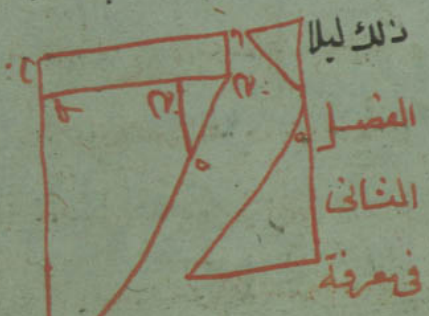 ذلك ليلا
الفصل
الثانى
فى معرفة